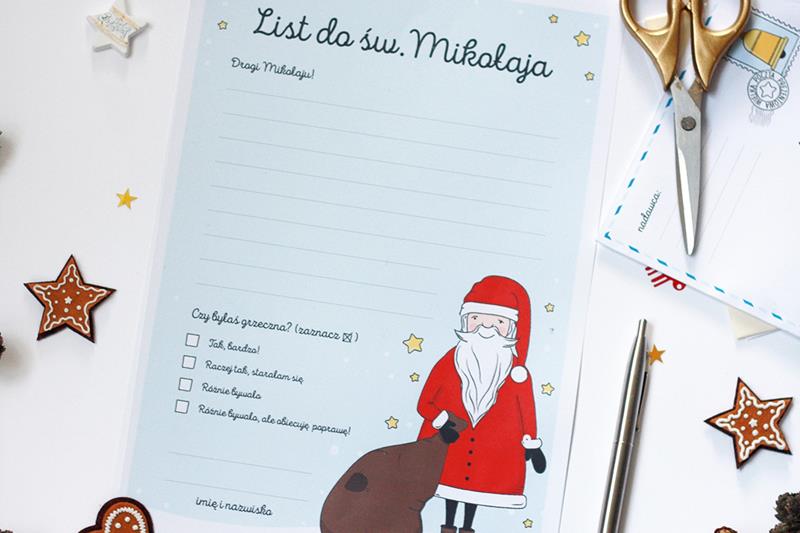 List do św. Mikołaja
Drogi Mikołaju!
Czy byłaś grzeczna? (zaznacz ☒)
Tak, bardzo!
Raczej tak, starałam się
Różnie bywało
Różnie bywało, ale obiecuję poprawę!
imię i nazwisko
nadawca: